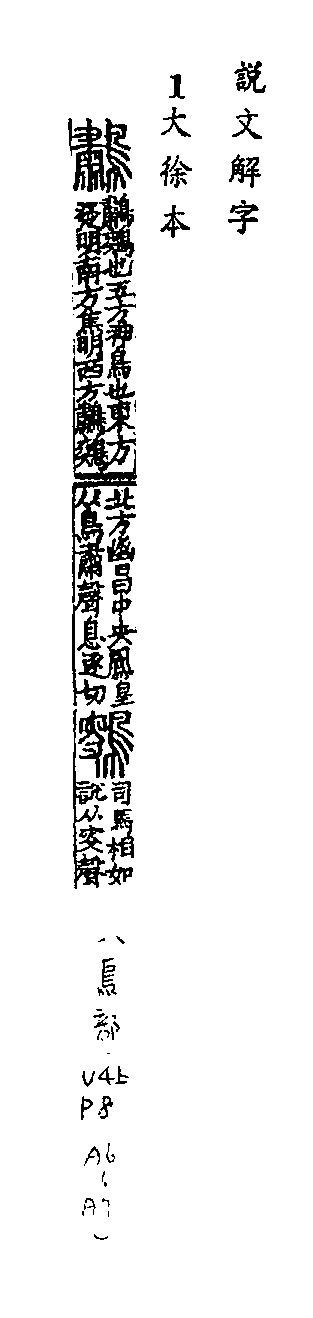 說文解字
1大徐本
鷫
鷫鷞也五方神鳥也東方
發明南方焦明西方鷫鷞
北方幽昌中央鳳皇
从鳥肅聲息逐切
司馬相如
說从叜聲
(鳥部
V4上
P8
A6
A7
)